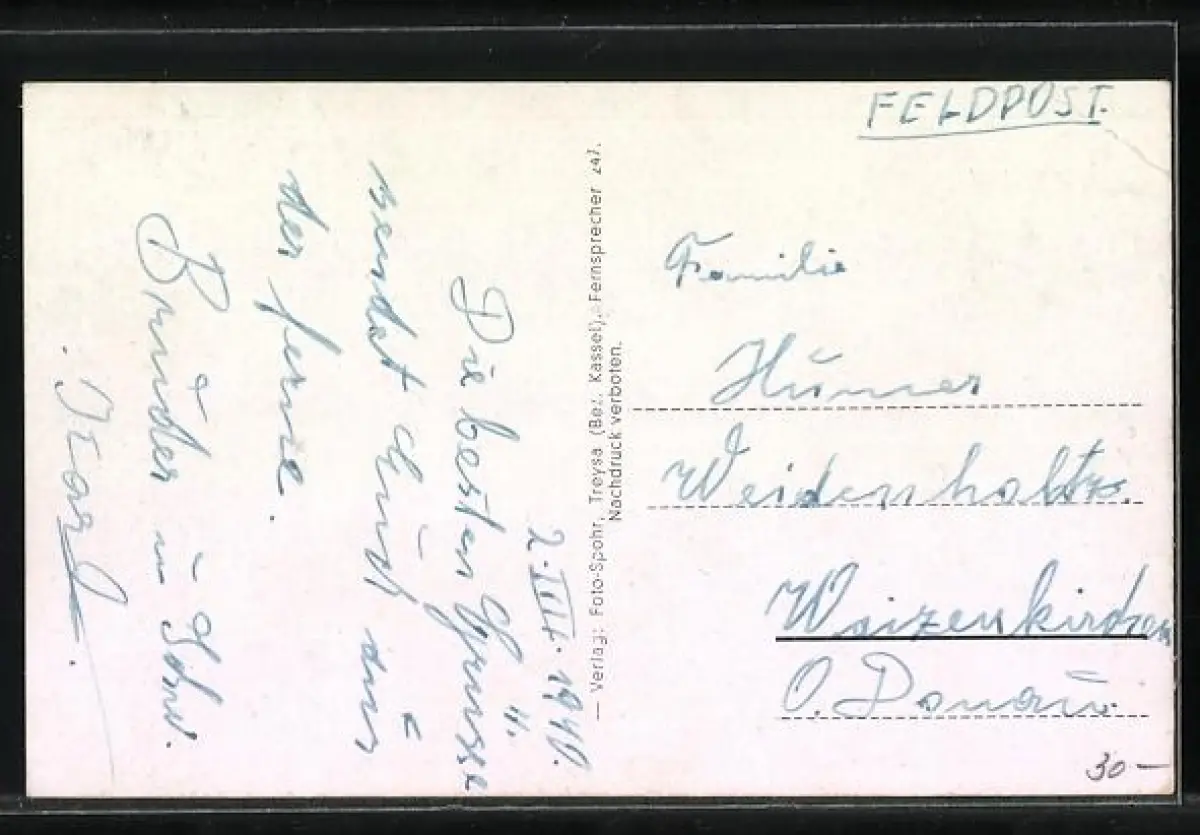 2. III. 1940.
Die besten Grüsse
sendet Euch aus
der ferne.
Bruder u Sohn.
Karl.
— Verlag: Foto-Spohr, Treysa (Bez. Kassel). Fernsprecher 247.
Nachdruck verboten.
FELDPOST.
Familie
Humer
Weidenholtz.
Waizenkirchen
O. Donau.
30 —